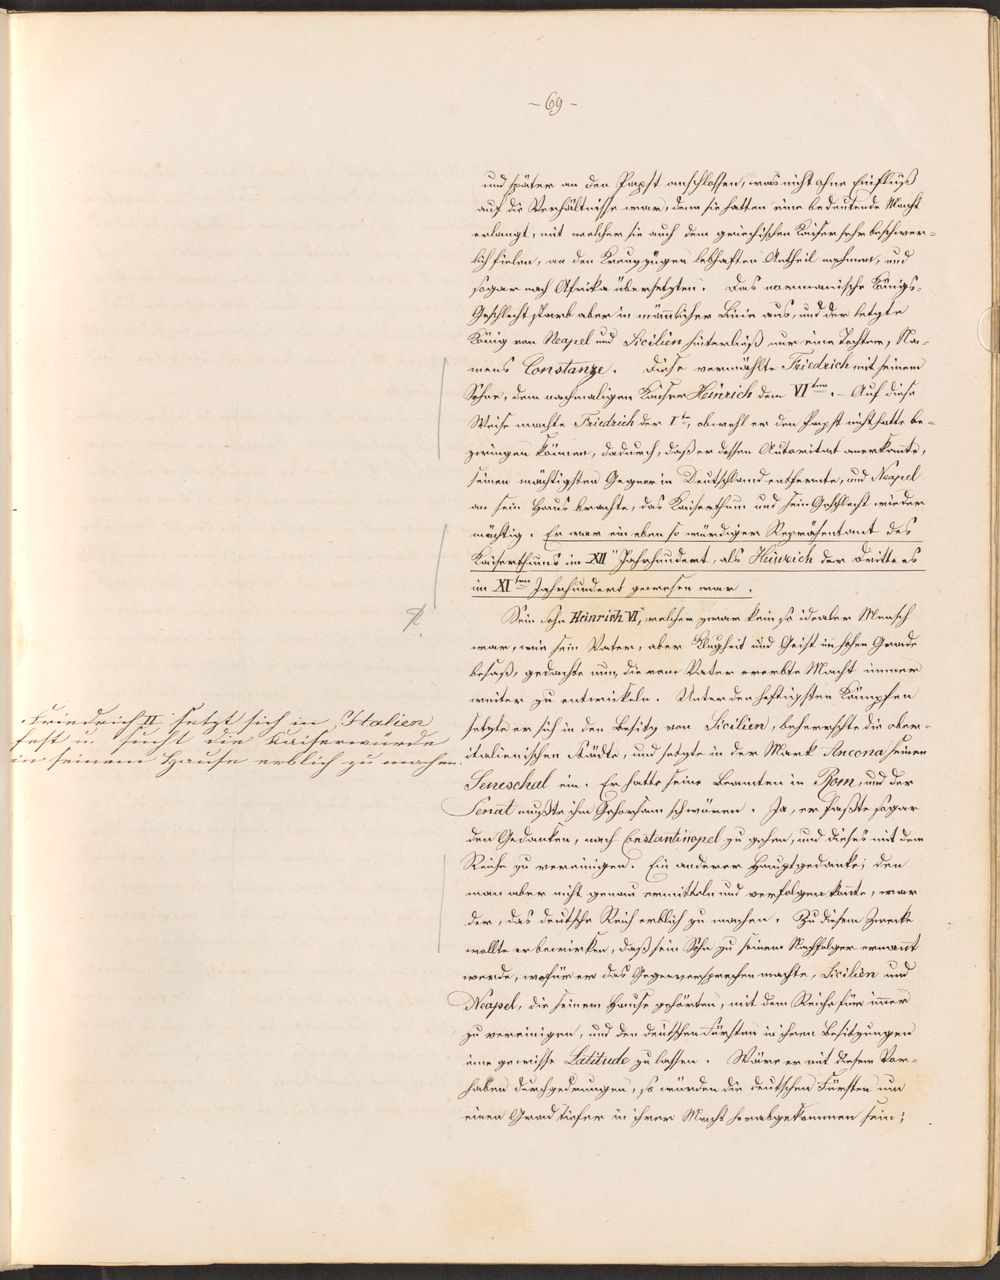 - 69 -
und später an den Papst anschlossen, was nicht ohne Einfluß
auf die Verhältnisse war, denn sie hatten eine bedeutende Macht
erlangt, mit welcher sie auch dem griechischen Kaiser sehr beschwer-
lich fielen, an den Kreuzzügen lebhaften Antheil nahmen, und
sogar nach Afrika übersetzten. Das normanische Königs-
Geschlecht starb aber in mänlicher Linie aus, und der letzte
König von Neapel und Sicilien hinterließ nur eine Tochter, Na-
mens Constanze. Diese vermählte Friedrich mit seinem
Sohne, dem nachmaligen Kaiser Heinrich dem VI ten. - Auf diese
Weise machte Friedrich der I te, obwohl er den Papst nicht hatte be-
zwingen können, dadurch, daß er dessen Autorität anerkannte,
seinen mächtigsten Gegner in Deutschland entfernte, und Neapel
an sein Haus brachte, das Kaiserthum und sein Geschlecht wieder
mächtig. Er war ein eben so würdiger Repräsentant des
Kaiserthums im XII Jahrhundert, als Heinrich der Dritte es
im XI ten Jahrhundert gewesen war.
Sein Sohn Heinrich VI, welcher zwar kein so idealer Mensch
war, wie sein Vater, aber Klugheit und Geist im hohen Grade
besaß, gedachte nun, die vom Vater ererbte Macht immer
weiter zu entwickeln. Unter den heftigsten Kämpfen
setzte er sich in den Besitz von Sicilien, beherrschte die ober-
italienischen Städte, und setzte in der Mark Ancona seinen
Seneschal ein. Er hatte seine Beamten in Rom, und der
Senat mußte ihm Gehorsam schwören. Ja, er faßte sogar
den Gedanken, nach Constantinopel zu gehen, und dieses mit dem
Reiche zu vereinigen. Ein anderer Hauptgedanke, den
man aber nicht genau ermitteln und verfolgen kannte, war
der, das deutsche Reich erblich zu machen. Zu diesem Zwecke
wollte er bewirken, daß sein Sohn zu seinem Nachfolger ernannt
werde, wofür er das Gegenversprechen machte, Sicilien und
Neapel, die seinem Hause gehörten, mit dem Reiche für immer
zu vereinigen, und den deutschen Fürsten in ihren Besitzungen
eine gewisse Latitude zu lassen. Wäre er mit diesem Vor-
haben durchgedrungen, so würden die deutschen Fürsten um
einen Grad tiefer in ihrer Macht herabgekommen sein;
Friedrich II setzt sich in Italien
fest u. sucht die Kaiserwürde
in seinem Hause erblich zu machen.